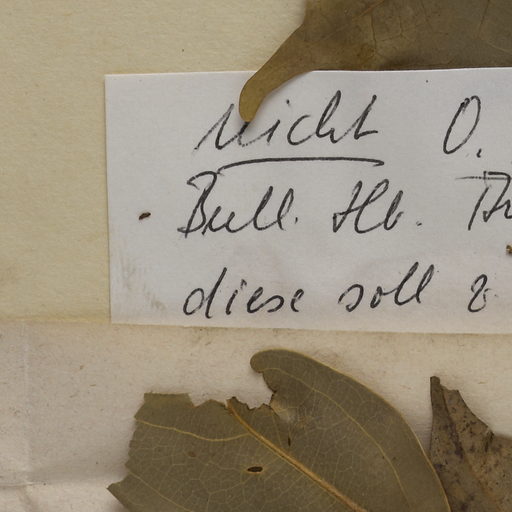 nicht O.
Bull. Hb. Th
diese soll 2